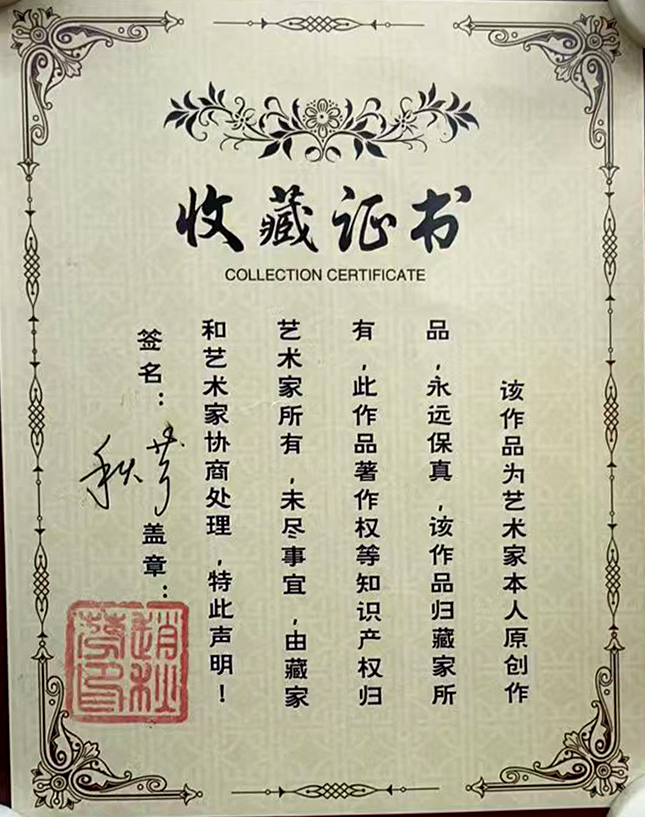 收藏证书
COLLECTION CERTIFICATE
该作品为艺术家本人原创作
品,永远保真,该作品归藏家所
有,此作品著作权等知识产权归
艺术家所有,未尽事宜,由藏家
和艺术家协商处理,特此声明!
签名:秋芳
盖章:
赵秋
芳印